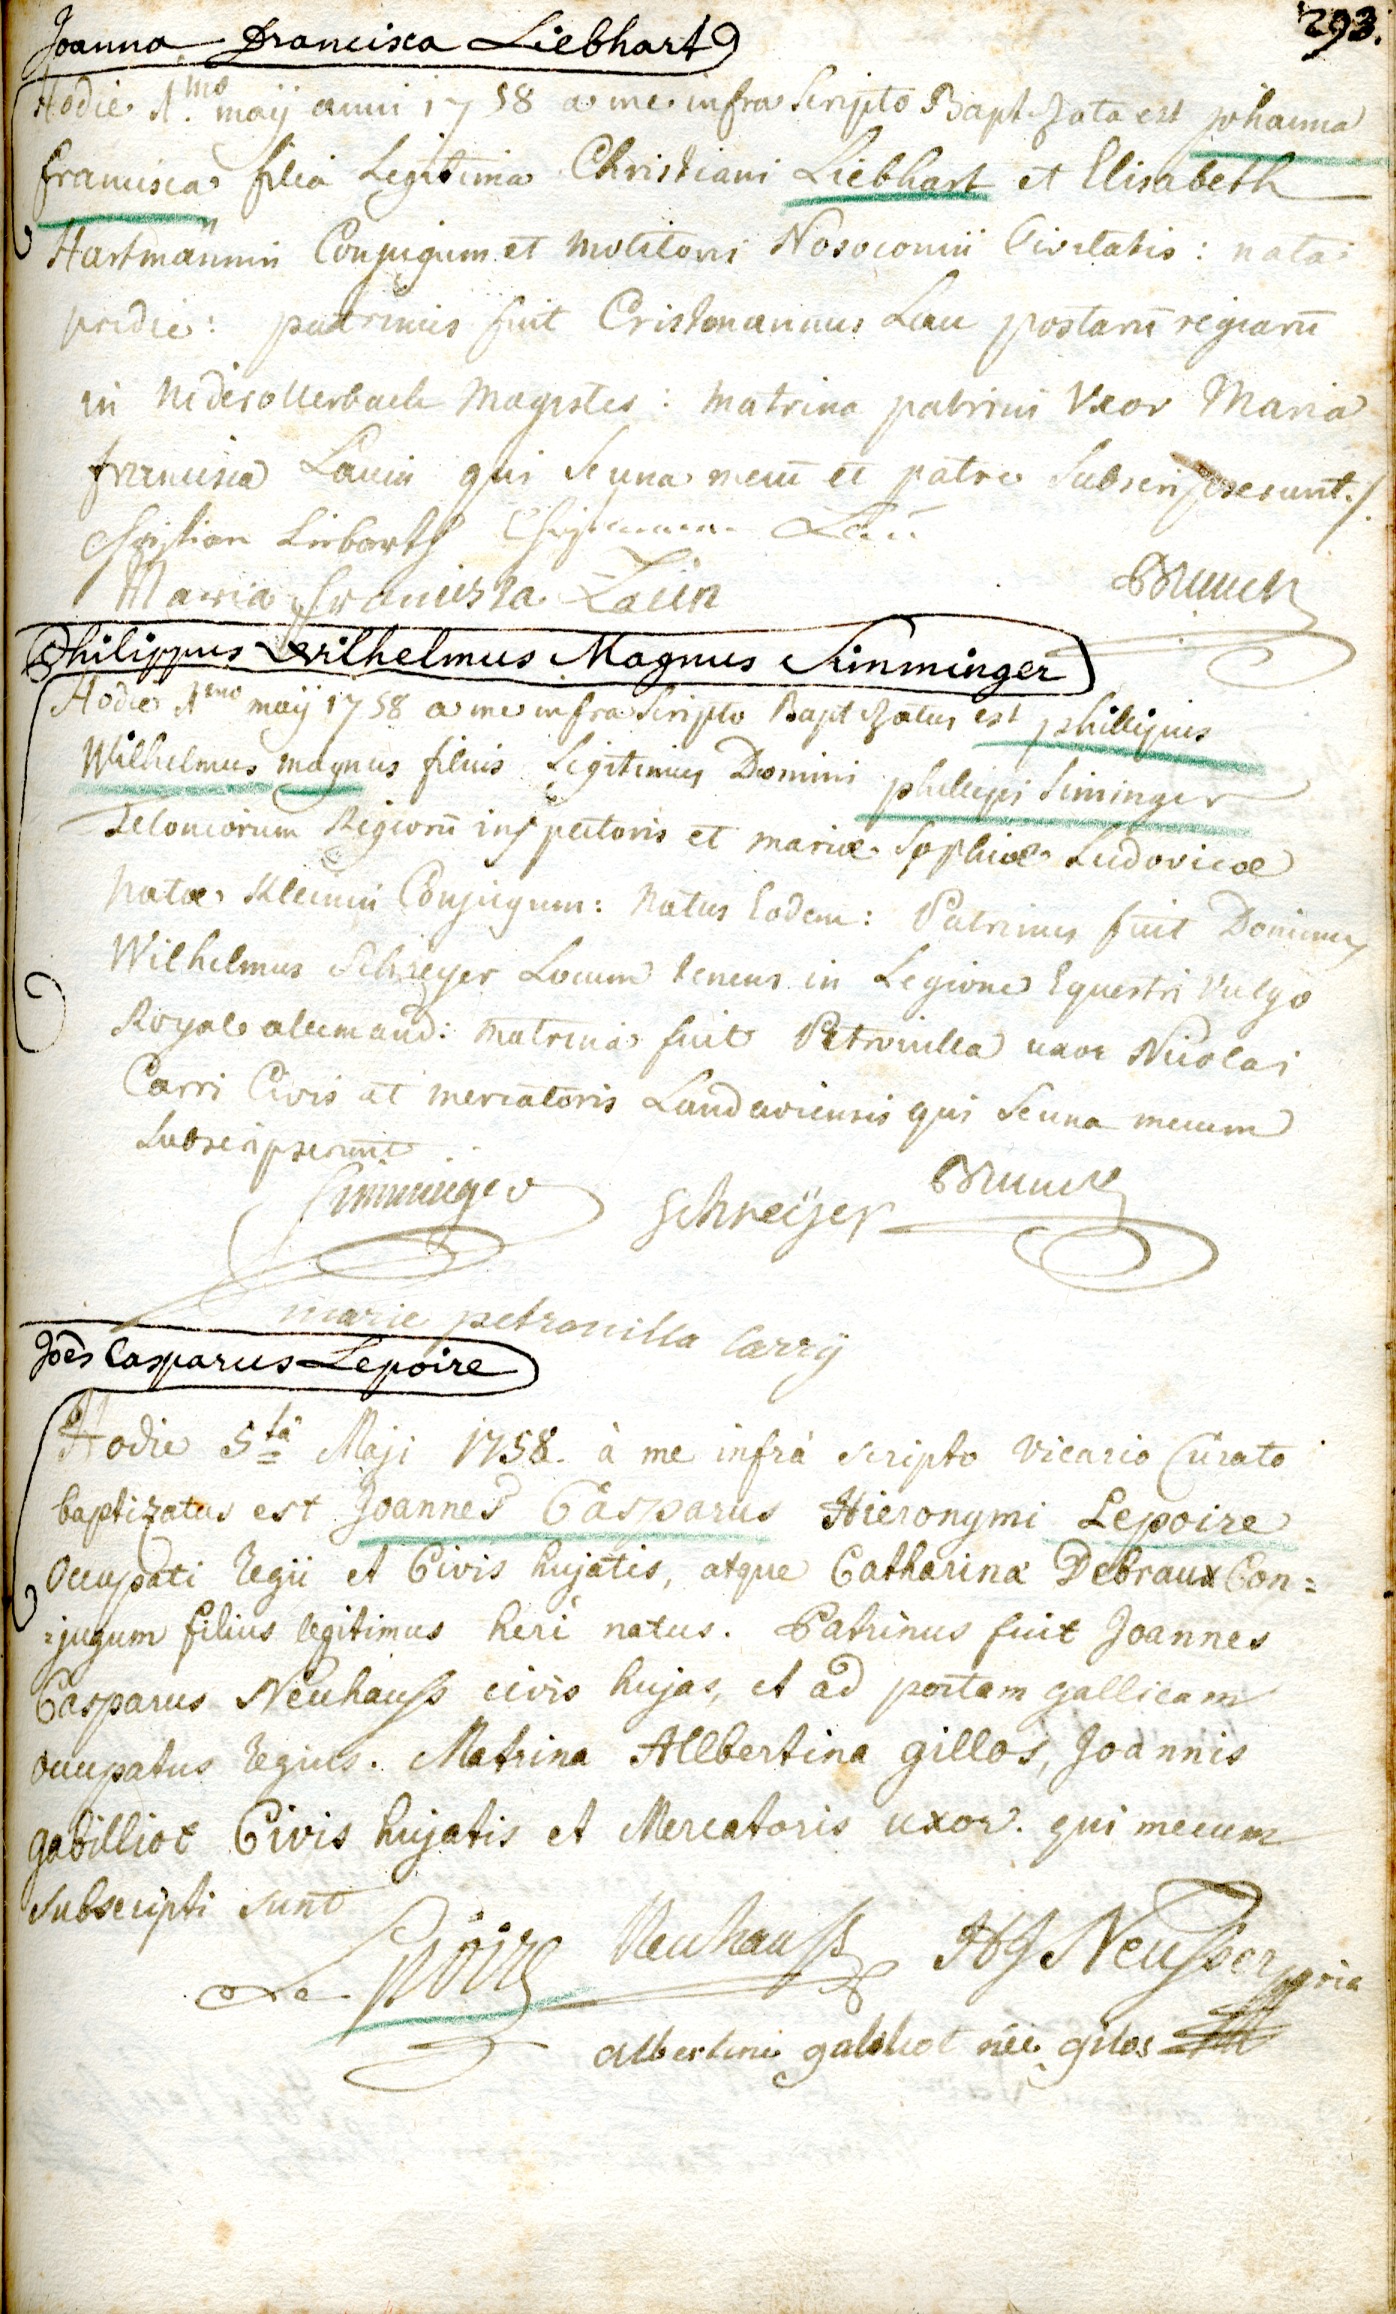 293.
Joanna Francisca Liebhart
Hodie 1.mo maÿ anni 1758 a me infra Scripto Baptizata est johanna
francisca filia Legitima Christiani Liebhart et Elisabeth
Hartmännin Conjugum et molitoris Nosocomii Civitatis: nata
pridie: patrinus fuit Cristmannus Lau postarū regiarū
in niderotterbach magister: matrina patrini Uxor Maria
francisca Lauin qui se una mecū et patre Subscripserunt./.
Christian Liebarth Christmann Lau
Maria francisca Lauin Brunck
Philippus Wilhelmus Magnus Simminger
Hodie 1mo maÿ 1758 a me infra Scripto Baptizatus est phillipus
Wilhelmus magnus filius Legitimus Domini phillipi Siminger
Teloniorum Regiorū inspectoris et mariæ Sophiæ Ludovicæ
natæ Kleinin Conjugum: natus Eodem: Patrinus fuit Dominus
Wilhelmus Schreyer Locum tenens in Legione Equestri Vulgo
Royal alemand: matrina fuit Petronilla uxor Nicolai
Carri Civis at mercatoris Landaviensis qui se una mecum
Subscripserunt
Simminger Schreÿer Brunck
marie petronilla Carrÿ
Joēs Casparus Lepoire
Hodie 5ta Maji 1758. à me infrà scripto vicario Curato
baptizatus est Joannes Casparus Hieronymi Lepoire
occupati regii et Civis hujatis, atque Catharina Debraux Con=
=jugum filius legitimus heri natus. Patrinus fuit Joannes
Casparus Neuhauss civis hujas, et ad portam gallicam
occupatus regius. Matrina Allbertina gillos, Joannis
gabilliot Civis hujatis et Mercatoris uxor. qui mecum
subscripti sunt
Lepoire Neuhauss HJ Neusser
albertine gabliot née gilos